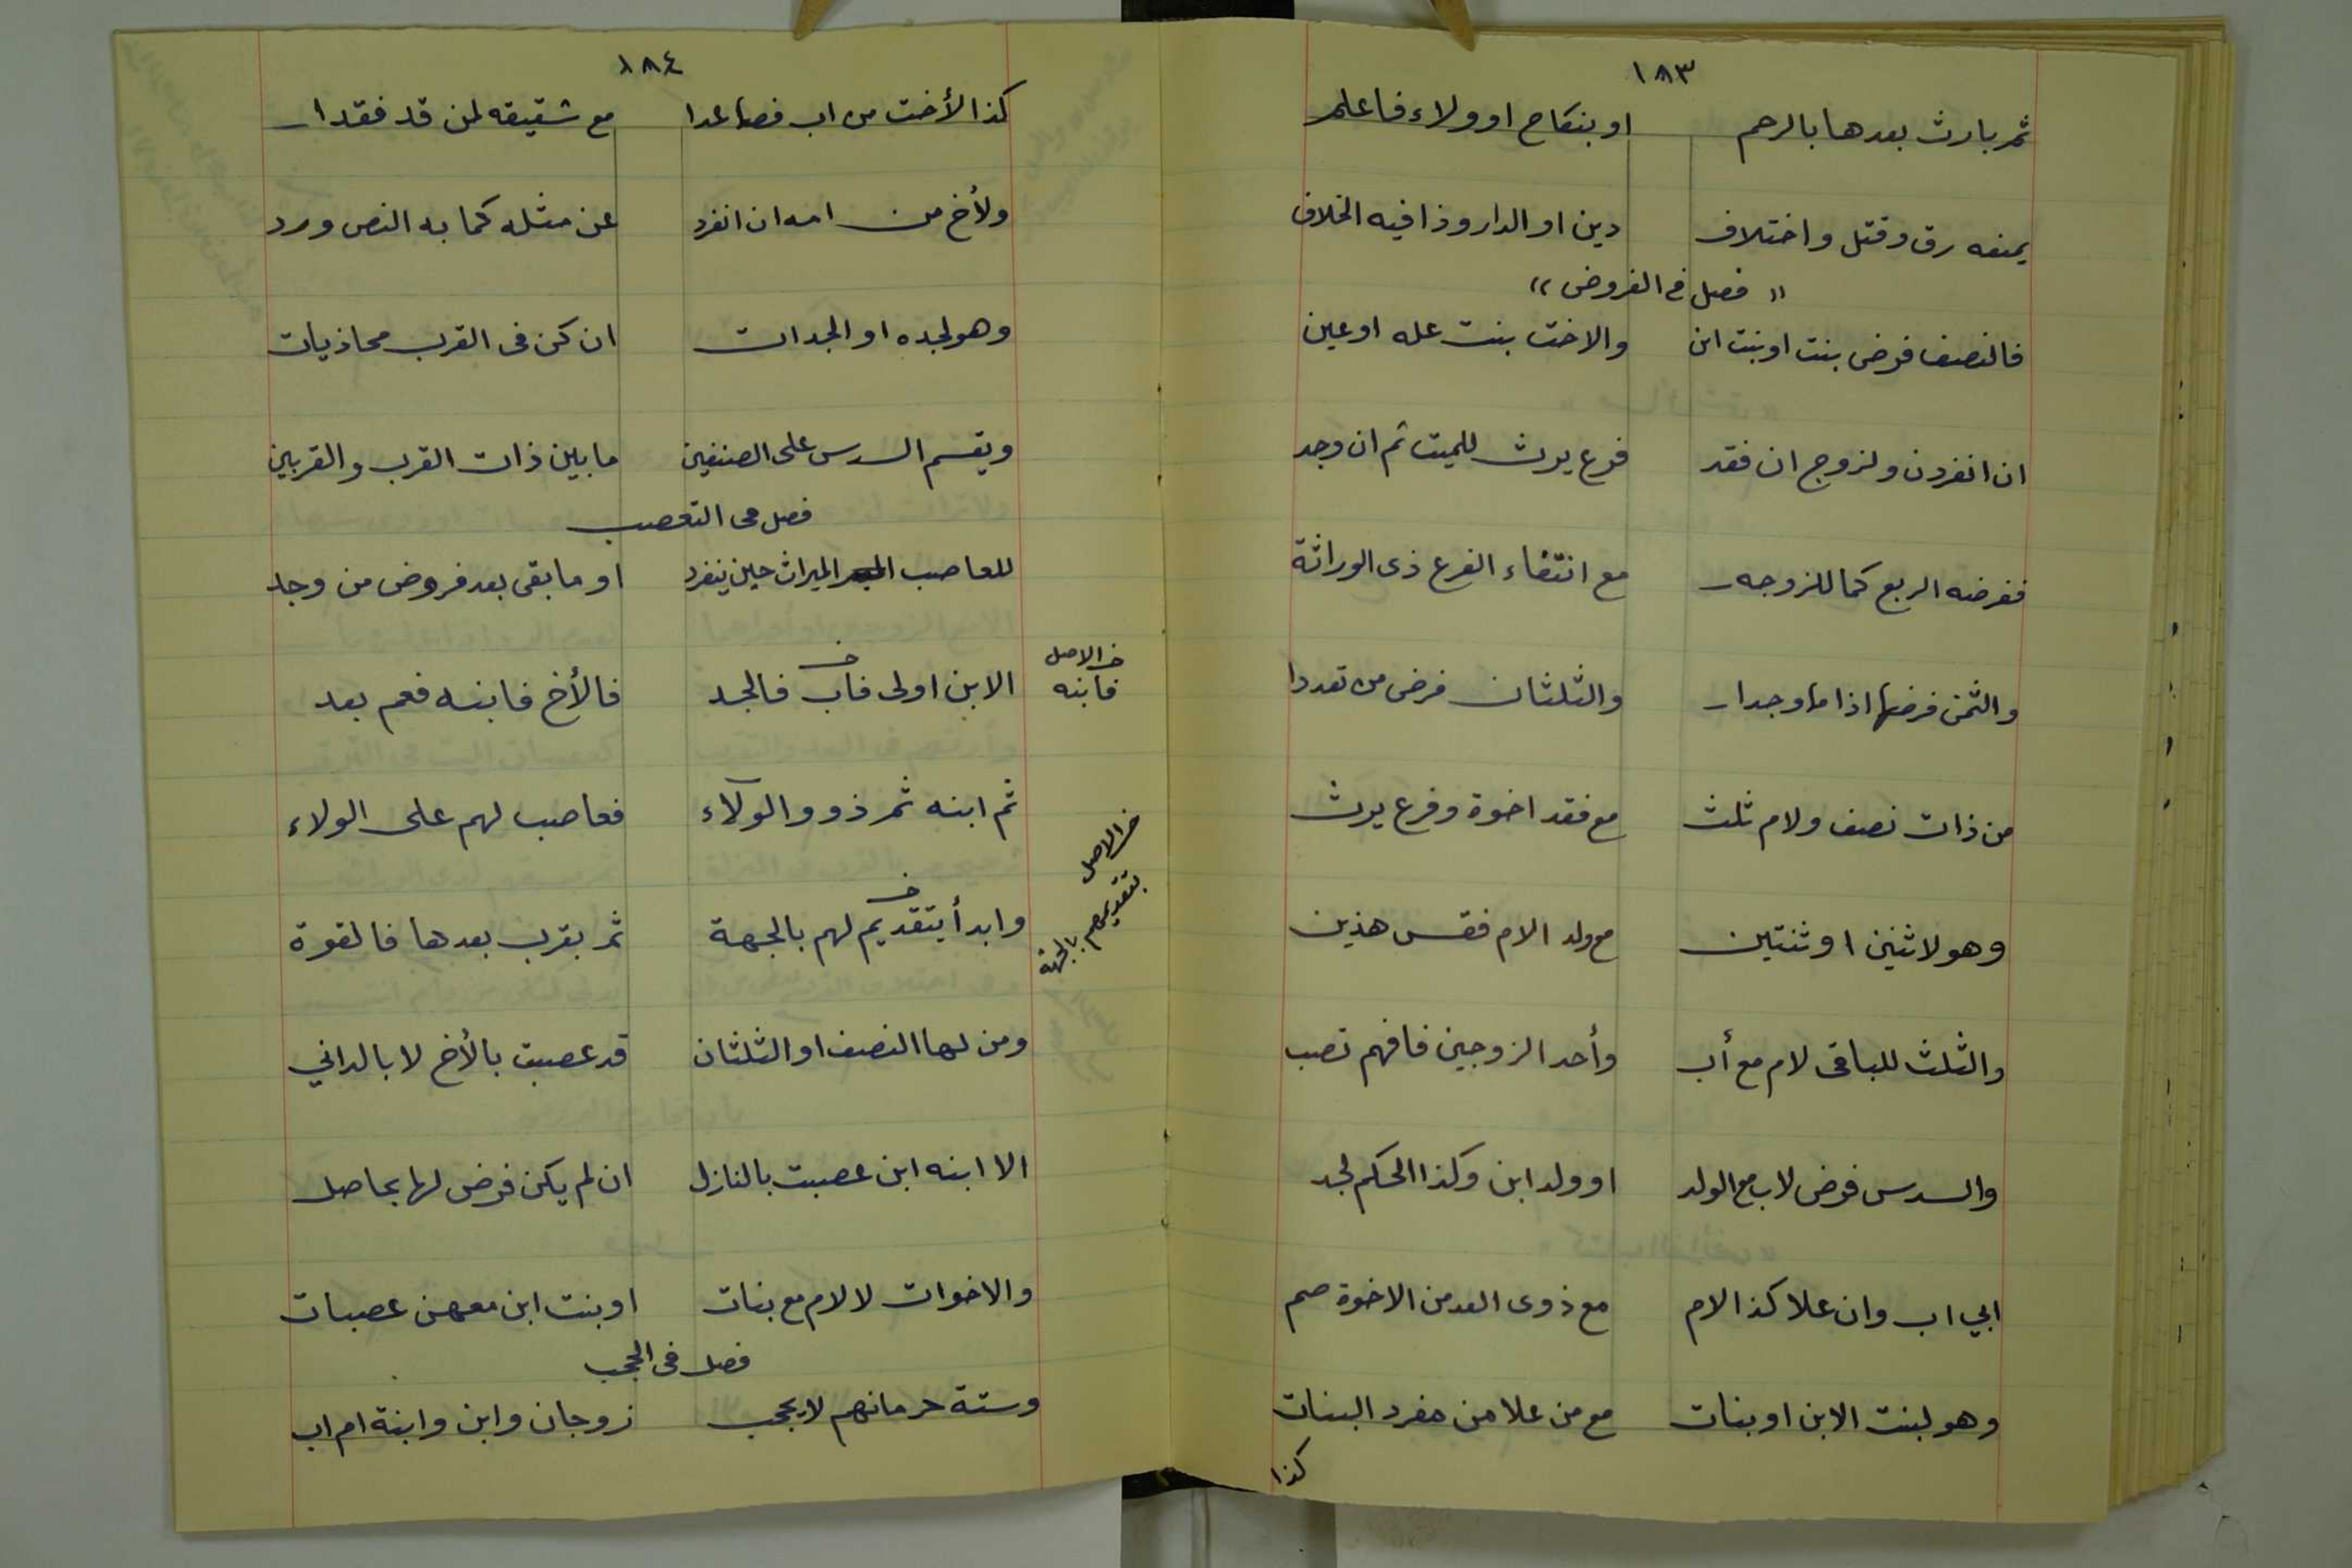 ١٨٣
ثم بارث بعدها بالرحم او بنكاح او ولاء فاعلم
يمنعه رق وقتل واختلاف دين او الدار وذا فيه الخلاف
« فصل في الفروض »
فالنصف فرض بنت او بنت ابن والاخت بنت عله او عين
ان انفردن ولزوج ان فقد فرع يرث للميت ثم ان وجد
ففرضه الربع كما للزوجه مع انتفاء الفرع ذى الوراثة
والثمن فرضها اذا ما وجدا والثلثان فرض من تعددا
من ذات نصف ولام ثلث مع فقد اخوة وفرع يرث
وهو لاثنين او ثنتين مع ولد الام فقس هذين
والثلث للباقى لام مع أب وأحد الزوجين فافهم تصب
والسدس فرض لاب مع الولد او ولد ابن وكذا الحكم لجد
ابي اب وان علا كذا الام مع ذوى العد من الاخوة صم
وهو لبنت الابن او بنات مع من علا من مفرد البنات
كذا
١٨٤
كذا الأخت من اب فصاعدا مع شقيقه لمن قد فقدا
ولأخ من امه ان انفرد عن مثله كما به النص ورد
وهو لجده او الجدات ان كن فى القرب محاذيات
ويقسم السدس على الصنفين ما بين ذات القرب والقربين
فصل فى التعصب
للعاصب الميراث حين ينفرد او ما بقى بعد فروض من وجد
الابن اولى فاب فالجد فالأخ فابنه فعم بعد
خ الاصل
فابنه
ثم ابنه ثم ذوو الولآء فعاصب لهم على الولاء
وابدأ بتقديم لهم بالجهة ثم بقرب بعدها فالقوة
خ الاصل
بتقديمهم بالجهة
ومن لها النصف او الثلثان قد عصبت بالأخ لا بالداني
الا ابنه ابن عصبت بالنازل ان لم يكن فرض لها بحاصل
والاخوات لا لام مع بنات او بنت ابن معهن عصبات
فصل فى الحجب
وستة حرمانهم لا يحجب زوجان وابن وابنة ام اب